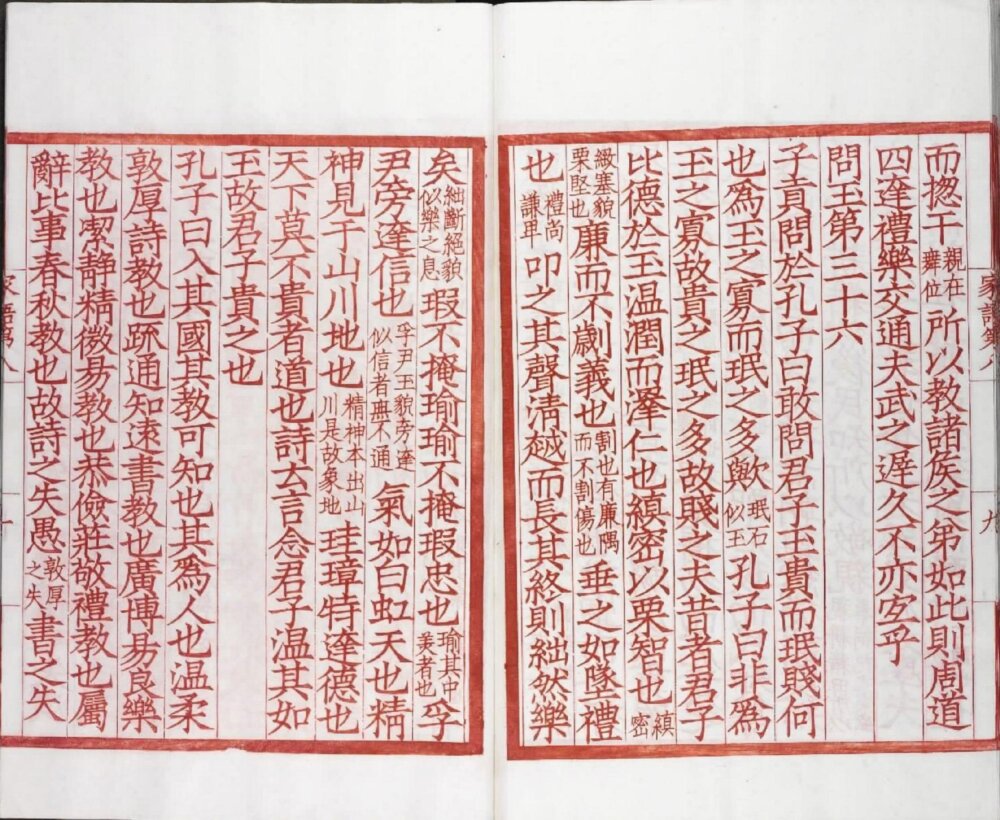 而揔干親在舞位所以教諸侯之弟如此則周道
四達禮樂交通夫武之遟久不亦宜乎
問玉第三十六
子貢問於孔子曰敢問君子玉貴而珉賤何
也為玉之寡而珉之多歟珉石似玉孔子曰非為
玉之寡故貴之珉之多故賤之夫昔者君子
比德於玉温潤而澤仁也縝密以栗智也縝密
緻塞貌栗堅也廉而不劌義也割也有廉隅而不割傷也垂之如墜禮
也禮尚謙卑叩之其聲清越而長其終則絀然樂
家語第八
九
矣絀斷絕貌似樂之息瑕不掩瑜瑜不掩瑕忠也瑜其中羙者也孚
尹旁達信也孚尹玉貌旁達似信者無不通氣如白虹天也精
神見于山川地也精神本出山川是故象地珪璋特達德也
天下莫不貴者道也詩云言念君子温其如
玉故君子貴之也
孔子曰入其國其教可知也其為人也温柔
敦厚詩教也䟽通知遠書教也廣博易良樂
教也潔静精微易教也恭儉莊敬禮教也屬
辭比事春秋教也故詩之失愚敦厚之失書之失